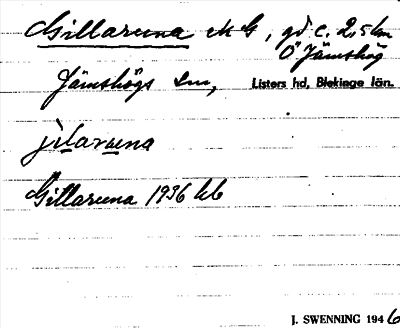 Gillaruna MG, gd. c. 2,5 km
Ö Jämshög
Jämshögs sn, Listers hd, Blekinge län.
jilaruna
Gillaruna 1936 kb
J. SWENNING 1946